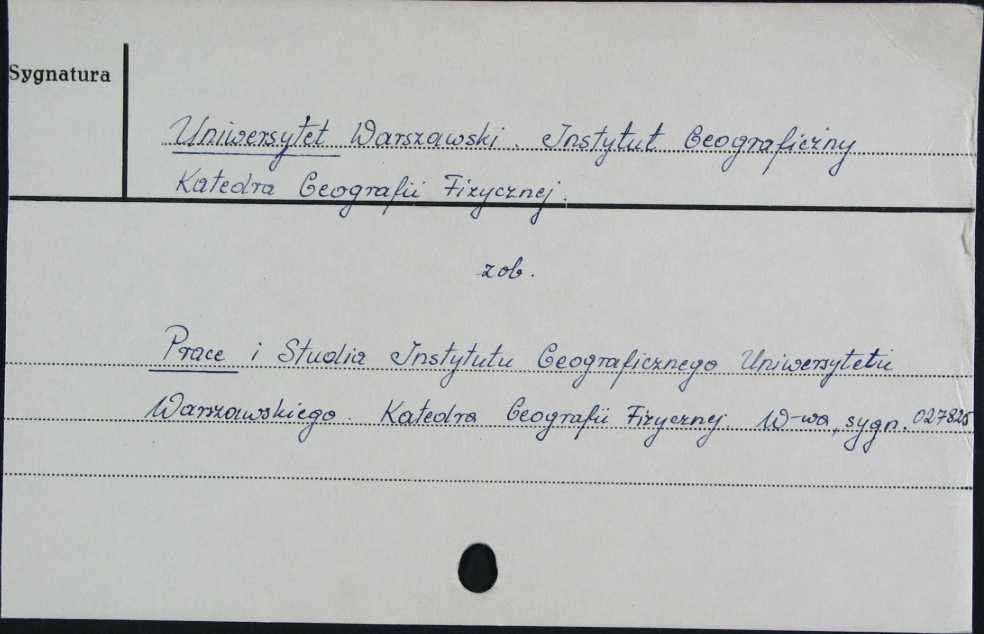 Sygnatura
Uniwersytet Warszawski. Instytut Geograficzny
Katedra Geografii Fizycznej.
zob.
Prace i Studia Instytutu Geograficznego Uniwersytetu
Warszawskiego. Katedra Geografii Fizycznej. W-wa, sygn. 027825